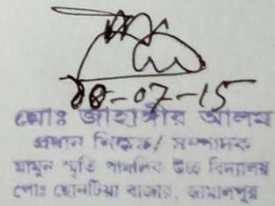 08-07-15
মোঃ জাহাঙ্গীর আলম
প্রধান শিক্ষক/ সম্পাদক
মামুন স্মৃতি পাবলিক উচ্চ বিদ্যালয়
পোঃ ছোনটিয়া বাজার, জামালপুর